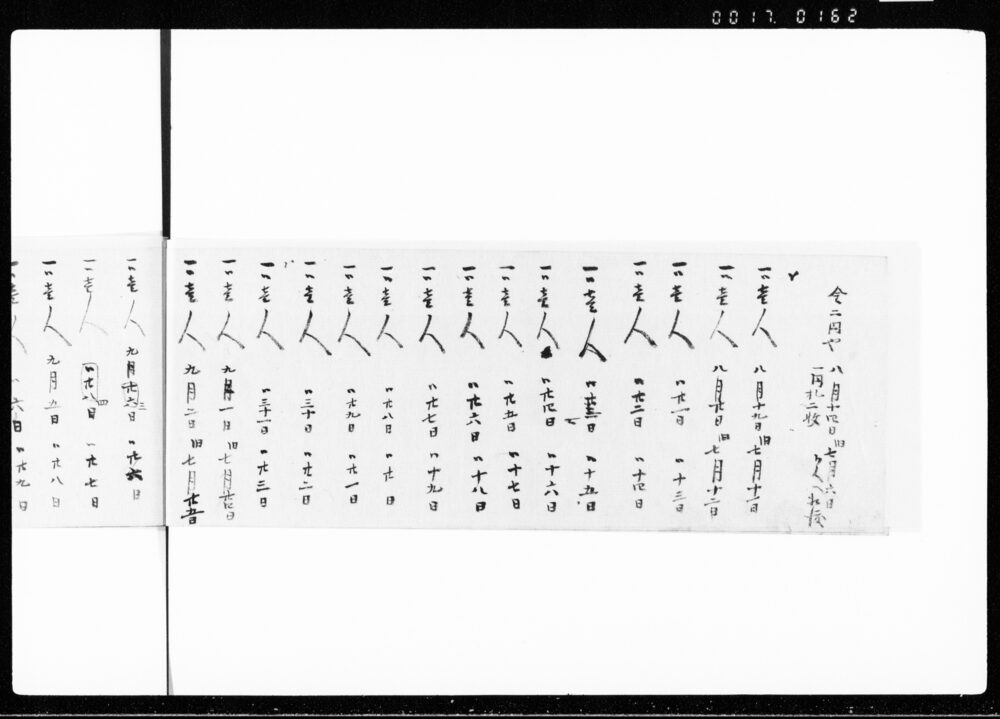 0017. 0162
金二円や 八月十四日旧七月六日
一円札二枚
一〃壱人 八月十九日旧七月十一日
一〃壱人 八月廿日旧七月十二日
一〃壱人 〃廿一日 〃十三日
一〃壱人 〃廿二日 〃十四日
一〃壱人 〃廿三日 〃十五日
一〃壱人 〃廿四日 〃十六日
一〃壱人 〃廿五日 〃十七日
一〃壱人 〃廿六日 〃十八日
一〃壱人 〃廿七日 〃十九日
一〃壱人 〃廿八日 〃廿日
一〃壱人 〃廿九日 〃廿一日
一〃壱人 〃三十日 〃廿二日
一〃壱人 〃三十一日 〃廿三日
一〃壱人 九月一日旧七月廿四日
一〃壱人 九月二日旧七月廿五日
一〃壱人 九月三日 〃廿六日
一〃壱人 〃四日 〃廿七日
一〃壱人 九月五日 〃廿八日
一〃壱人 〃六日 〃廿九日